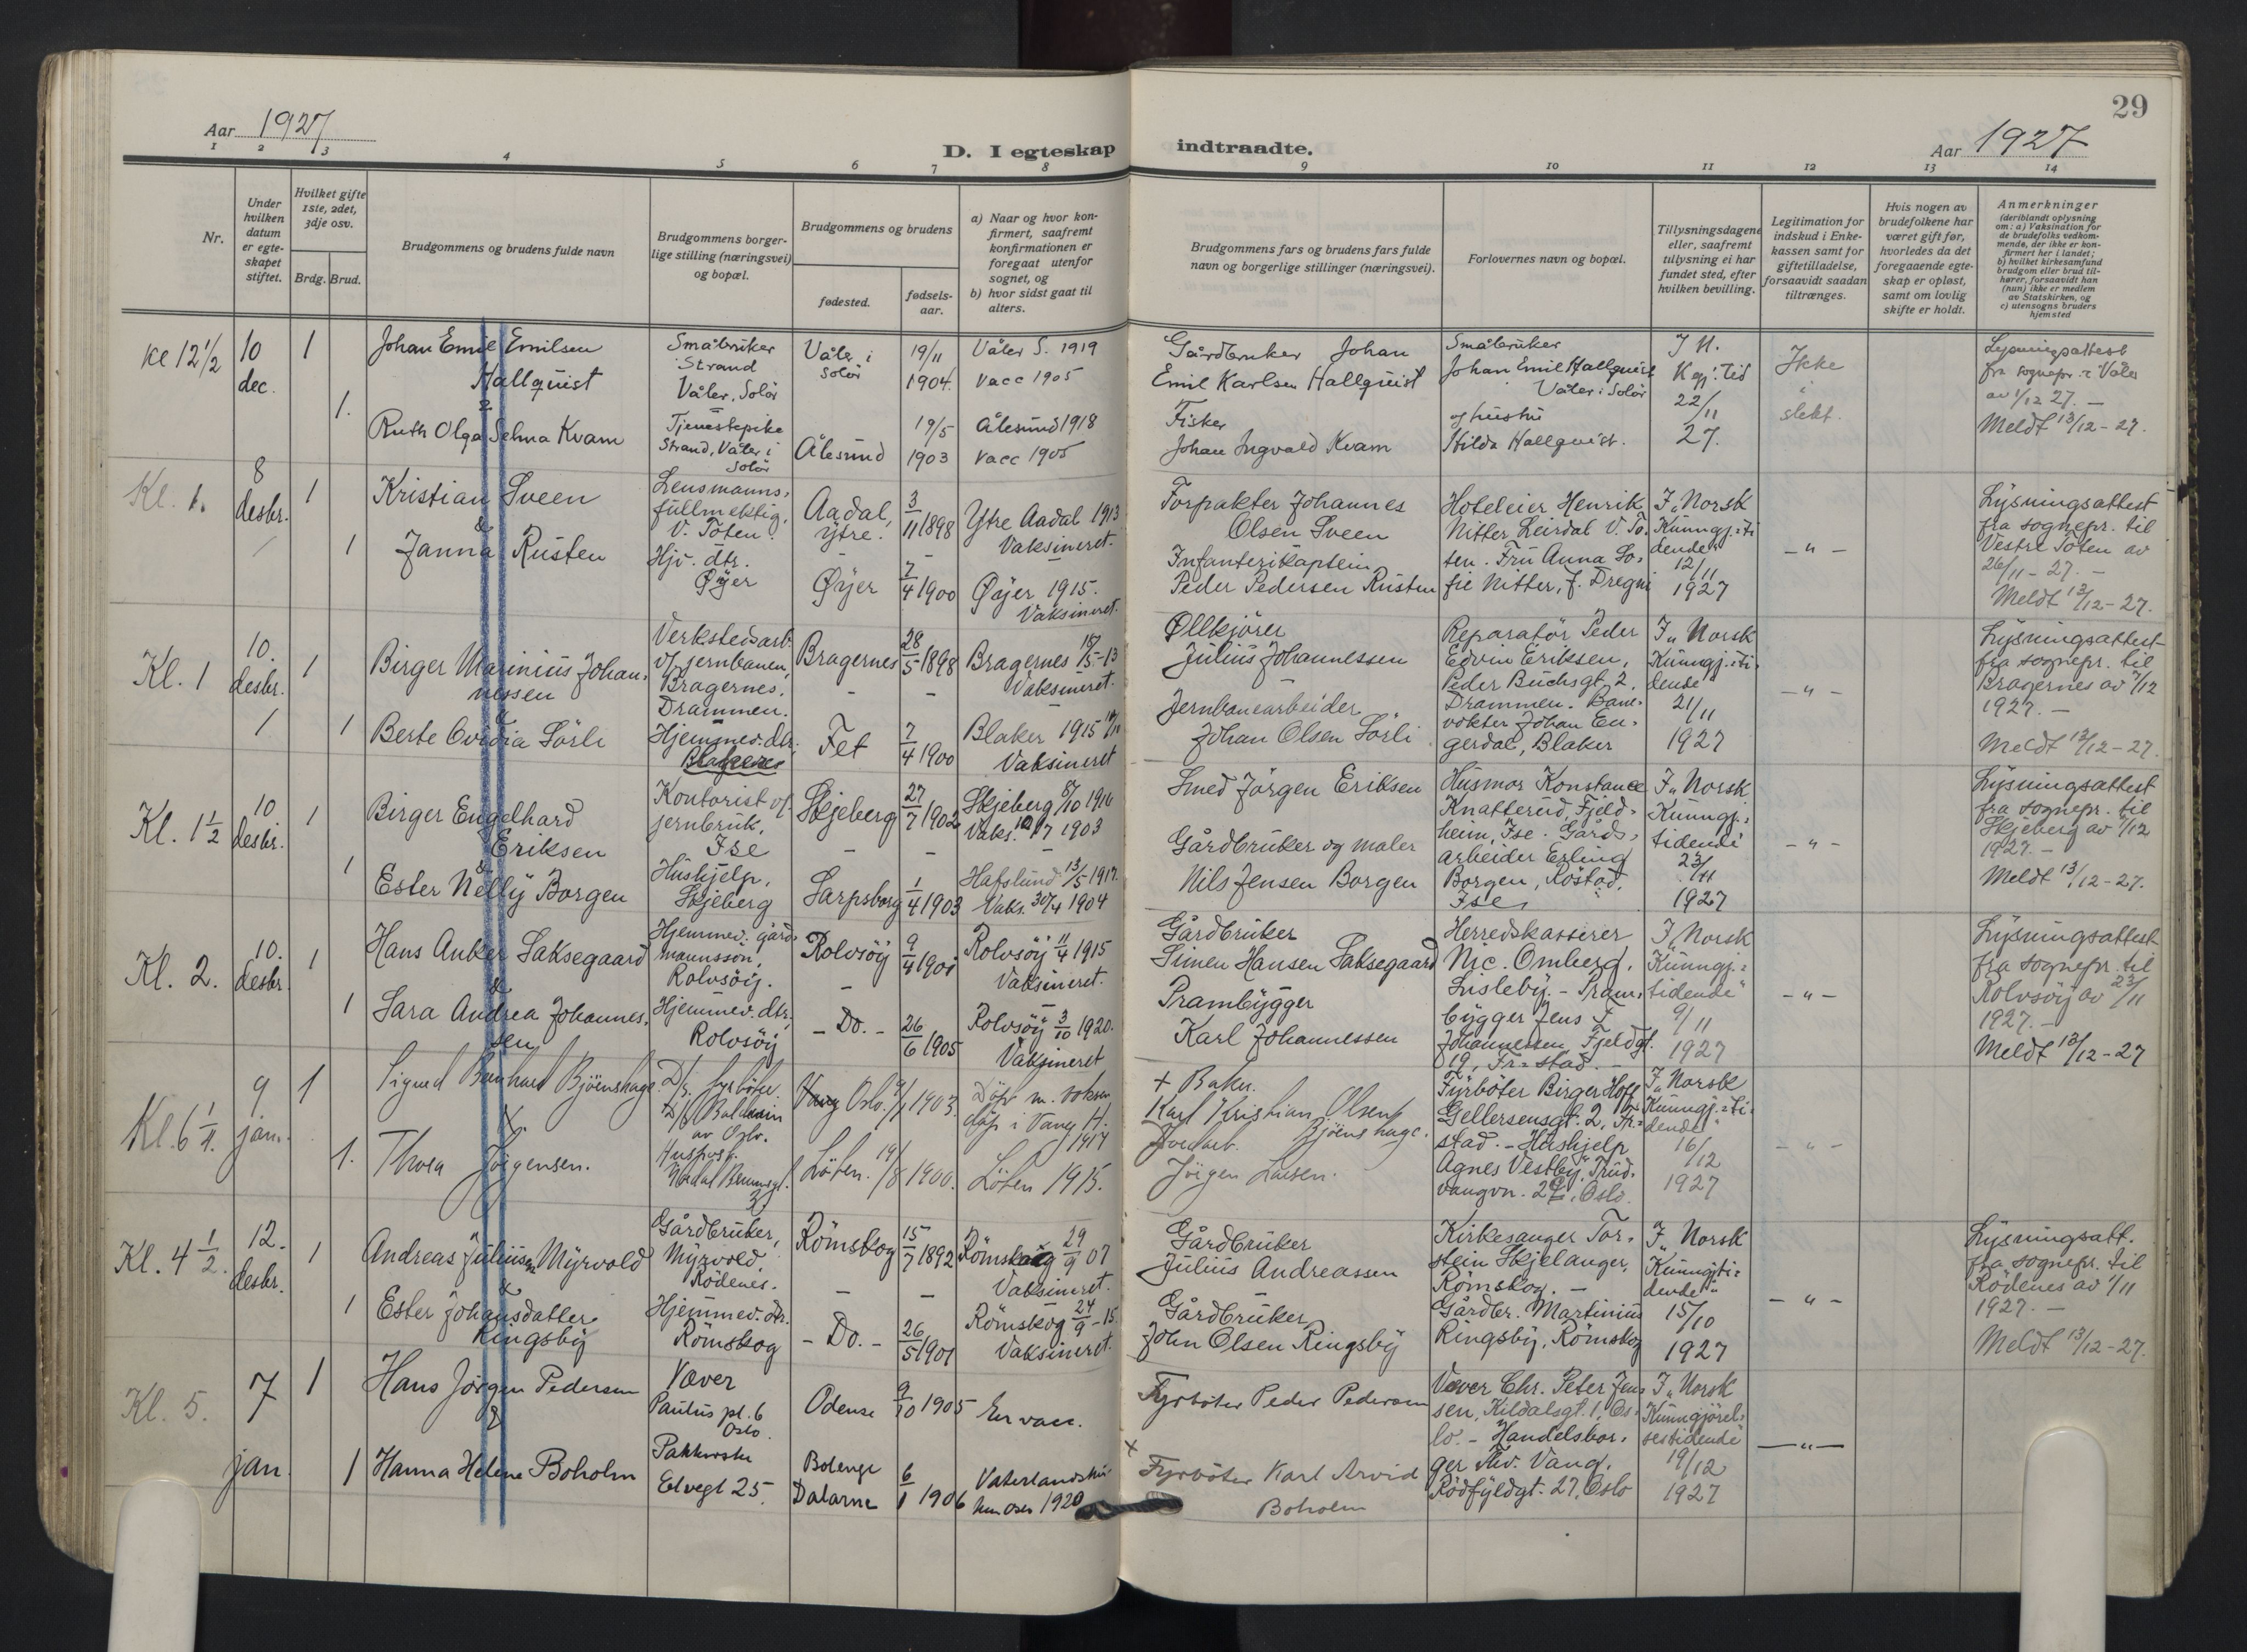 29
Aar 1927
D. I egteskap indtraadte.
Aar 1927
1 2 3 4 5 6 7 8 9 10 11 12 13 14
Nr.
Under hvilken datum er egteskapet stiftet.
Hvilket gifte 1ste, 2det, 3dje osv.
Brdg. Brud.
Brudgommens og brudens fulde navn
Brudgommens borgerlige stilling (næringsvei) og bopæl.
Brudgommens og brudens
fødested.
fødselsaar.
a) Naar og hvor konfirmert, saafremt konfirmationen er foregaat utenfor sognet, og
b) hvor sidst gaat til alters.
Brudgommens fars og brudens fars fulde navn og borgerlige stillinger (næringsvei).
Forlovernes navn og bopæl.
Tillysningsdagene eller, saafremt tillysning ei har fundet sted, efter hvilken bevilling.
Legitimation for indskud i Enkekassen samt for giftetilladelse, forsaavidt saadan tiltrænges.
Hvis nogen av brudefolkene har været gift før, hvorledes da det foregaaende egteskap er opløst, samt om lovlig skifte er holdt.
Anmerkninger (deriblandt oplysning om: a) Vaksination for de brudefolks vedkommende, der ikke er konfirmert her i landet; b) hvilket kirkesamfund brudgom eller brud tilhører, forsaavidt han (hun) ikke er medlem av Statskirken, og c) utensogns bruders hjemsted
Kl 12 1/2
10 dec.
1
Johan Emil Emilsen
Hallquist
&
1.
Ruth Olga Selma Kvam
Småbruker
Strand
Våler, Solör
Tjenestepike
Strand, Våler i
Solör
Våler i
Solör
19/11
1904.
Ålesund
19/5
1903
Våler S. 1919
vacc 1905
Ålesund 1918
vacc 1905
Gårdbruker Johan
Emil Karlsen Hallquist
Fisker
Johan Ingvald Kvam
Småbruker
Johan Emil Hallquist
Våler i Solör
og hustru
Hilda Hallquist.
I N.
Kgj. tid
22/11
27.
Ikke
i
slekt.
Lysningsattest
fra sognepr. i Våler
av 1/12 27. —
Meldt 13/12-27.
Kl. 1.
8
desbr.
1
Kristian Sveen
&
1
Janna Rusten
Lensmanns-
fullmektig,
V. Toten.
Hjv. dtr.
Øyer
Aadal,
ytre.
3/11 1898
Øyer
7/4 1900
Ytre Aadal 1913
Vaksineret.
Øyer 1915.
Vaksineret.
Forpakter Johannes
Olsen Sveen
Infanterikaptein
Peder Pedersen Rusten
Hoteleier Henrik
Nitter Leirdal V. To-
ten. Fru Anna So-
fie Nitter, f. Dregni
I „Norsk
Kunngj.-ti
dende"
12/11
1927
- " -
Lysningsattest
fra sognepr. til
Vestre Toten av
26/11 - 27. -
Meldt 13/12-27.
Kl. 1
10.
desbr.
1
Birger Marinius Johan-
nessen
&
1
Berte Ovidia Sörli
Verkstedsarb.
v/ jernbanen,
Bragernes,
Drammen.
Hjemmev. dtr.
Bragernes
28/5 1898
Fet
7/4 1900
Bragernes 18/5-13
Vaksineret.
Blaker 1915
Vaksineret
Øllkjörer
Julius Johannessen
Jernbanearbeider
Johan Olsen Sörli
Reparatör Peder
Edvin Eriksen,
Peder Buchsgt. 2,
Drammen. Bane-
vokter Johan En-
gerdal, Blaker
I „Norsk
Kunngj.-ti-
dende"
21/11
1927
- " -
Lysningsattest
fra sognepr. til
Bragernes av 7/12
1927. —
Meldt 13/12-27.
Kl. 1 1/2
10.
desbr.
1
Birger Engelhard
Eriksen
&
1
Ester Nelly Borgen
Kontorist v/
jernbruk,
Ise
Hushjelp,
Skjeberg
Skjeberg
27/7 1902
Sarpsborg
1/4 1903
Skjeberg 8/10 1916
Vaks. 10/7 1903
Hafslund 13/5 1917.
Vaks. 30/4 1904
Smed Jörgen Eriksen
Gårdbruker og maler
Nils Jensen Borgen
Husmor Konstance
Knatterud, Fjeld-
heim, Ise. Gårds-
arbeider Erling
Borgen, Röstad,
Ise,
I „Norsk
Kunngj.-
tidende
23/11
1927
- " -
Lysningsattest
fra sognepr. til
Skjeberg av 7/12
1927. —
Meldt 13/12-27.
Kl. 2.
10.
desbr
1
Hans Anker Saksegaard
&
1
Sara Andrea Johannes-
sen
Hjemmev. gård-
mannssön,
Rolvsöy.
Hjemmev. dtr.
Rolvsöy
Rolvsöy
9/4 1901
- Do. -
26/6 1905
Rolvsöy 11/4 1915
Vaksineret.
Rolvsöy 3/10 1920.
Vaksineret
Gårdbruker
Simen Hansen Saksegaard
Prambygger
Karl Johannessen
Herredskasserer
Nic. Omberg,
Lisleby. - Pram-
bygger Jens L
Johannessen, Fjeldgt.
19, Fr=stad. —
I „Norsk
Kunngj.-
tidende"
9/11
1927
- " -
Lysningsattest
fra sognepr. til
Rolvsöy av 23/11
1927. —
Meldt 13/12-27
Kl. 6 1/4.
9
jan.
1
Sigurd Bernhard Bjöenshage
&
1.
Thora Jörgensen.
D/s fyrböter
D/s Baldwin
av Oslo.
Oslo.
1903.
Löten.
19/8 1900.
Döpt m. voksen
dåp i Vang H.
1917
Löten 1915.
+ Baker
Karl Kristian Olsen
Bjöenshage.
Jordarb.
Jörgen Larsen.
Fyrböter Birger Hoff
Gellersensgt. 2, Fr.-
stad. - Hushjelp
Agnes Vestby, Trud-
vangvn. 22, Oslo.
I „Norsk
Kunngj.-ti-
dende"
16/12
1927
- " -
Kl. 4 1/2.
12.
desbr.
1
Andreas Juliusen Myrvold
&
1
Ester Johansdatter
Ringsby
Gårdbruker,
Myrvold,
Rödenes.
Hjemmev. dtr.
Römskog
Römskog
15/7 1892
- Do. -
26/5 1901
Römskog 29/9 07
Vaksineret.
Römskog 24/9 - 15
Vaksineret.
Gårdbruker
Julius Andreassen
Gårdbruker
John Olsen Ringsby
Kirkesanger Tor-
stein Skjelanger,
Römskog. —
Gårdbr. Martinius
Ringsby, Römskog
I „Norsk
Kunngj.ti-
dende"
15/10
1927
- " -
Lysningsatt.
fra sognepr. til
Rödenes av 1/11
1927. —
Meldt 13/12-27.
Kl. 5.
7
jan.
1
Hans Jörgen Pedersen
&
1
Hanna Helene Boholm
Væver
Paulus pl. 6
Oslo.
Pakkerske
Elvegt 25.
Odense
9/10 1905
Bolenge
Dalarne
6/1 1906
Er vacc.
1920
Fyrböter Peder Pedersen
+
Fyrböter Karl Arvid
Boholm
Væver Chr. Peter Jen-
sen, Kildalsgt. 1, Os-
lo. - Handelsbor-
ger Thv. Vang,
Rödfyldgt. 27, Oslo
I „Norsk
Kunngjörel-
sestidende
19/12
1927
- " -